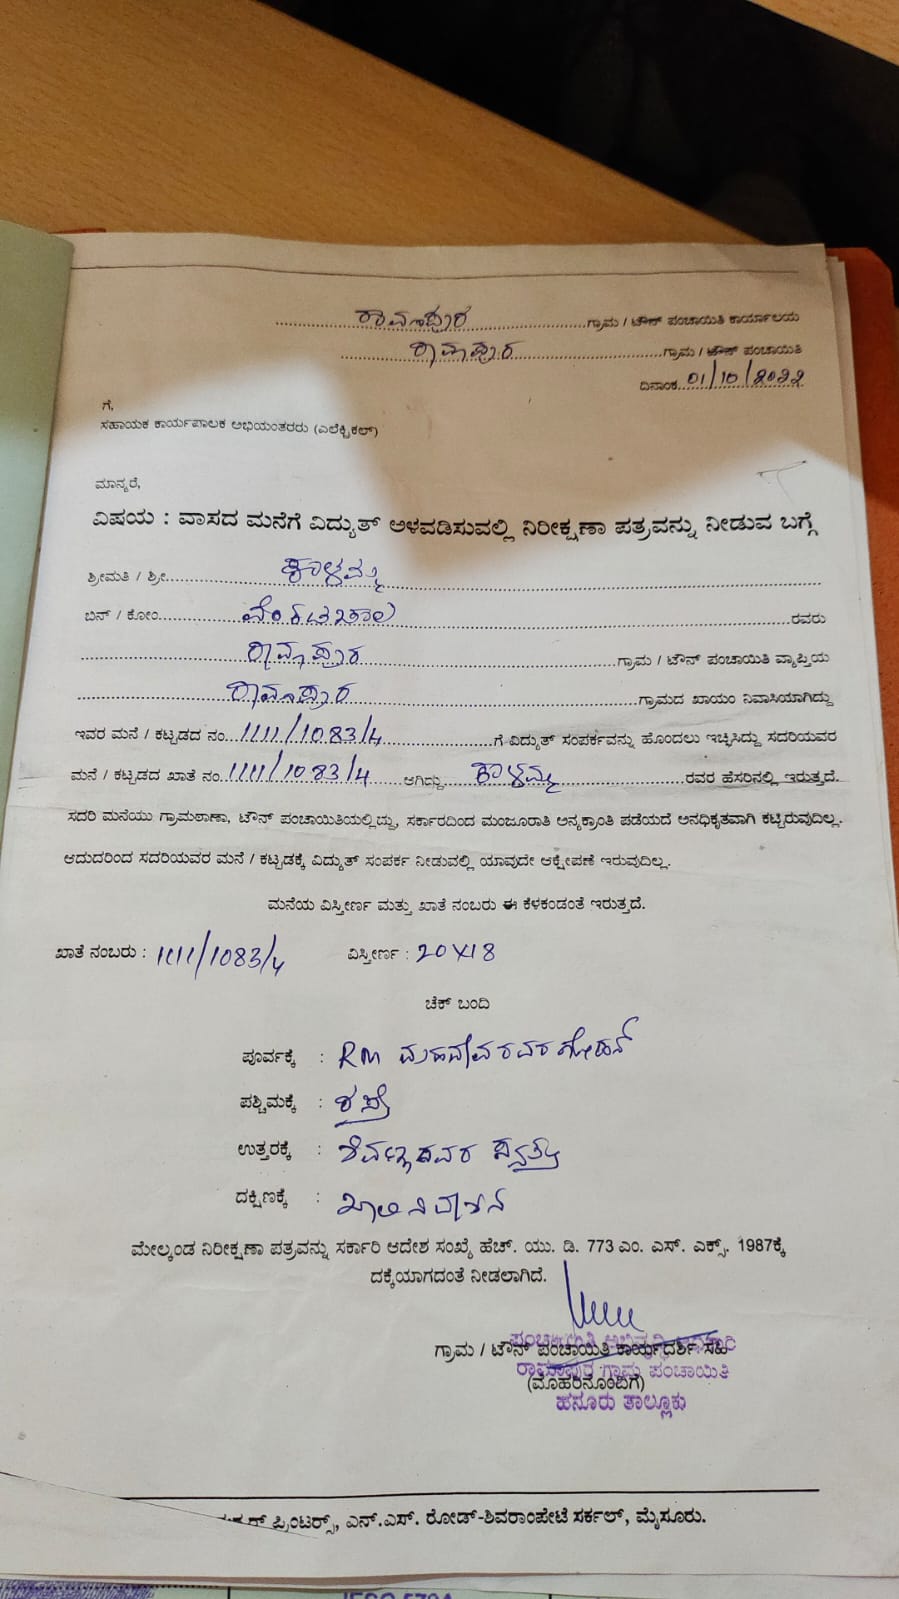 ರಾಮಾಪುರ ಗ್ರಾಮ / ಟೌನ್ ಪಂಚಾಯಿತಿ ಕಾರ್ಯಾಲಯ
ರಾಮಾಪುರ ಗ್ರಾಮ / ಟೌನ್ ಪಂಚಾಯಿತಿ
ದಿನಾಂಕ 01/10/2022
ಗೆ,
ಸಹಾಯಕ ಕಾರ್ಯಪಾಲಕ ಅಭಿಯಂತರರು (ಎಲೆಕ್ಟ್ರಿಕಲ್)
ಮಾನ್ಯರೆ,
ವಿಷಯ : ವಾಸದ ಮನೆಗೆ ವಿದ್ಯುತ್ ಅಳವಡಿಸುವಲ್ಲಿ ನಿರೀಕ್ಷಣಾ ಪತ್ರವನ್ನು ನೀಡುವ ಬಗ್ಗೆ
ಶ್ರೀಮತಿ / ಶ್ರೀ ಕಾಳಮ್ಮ
ಬಿನ್ / ಕೋಂ ವೆಂಕಟಾಚಾಲ ರವರು
ರಾಮಾಪುರ ಗ್ರಾಮ / ಟೌನ್ ಪಂಚಾಯಿತಿ ವ್ಯಾಪ್ತಿಯ
ರಾಮಾಪುರ ಗ್ರಾಮದ ಖಾಯಂ ನಿವಾಸಿಯಾಗಿದ್ದು
ಇವರ ಮನೆ / ಕಟ್ಟಡದ ನಂ. 1111/1083/4 ಗೆ ವಿದ್ಯುತ್ ಸಂಪರ್ಕವನ್ನು ಹೊಂದಲು ಇಚ್ಛಿಸಿದ್ದು ಸದರಿಯವರ
ಮನೆ / ಕಟ್ಟಡದ ಖಾತೆ ನಂ. 1111/1083/4 ಆಗಿದ್ದು ಕಾಳಮ್ಮ ರವರ ಹೆಸರಿನಲ್ಲಿ ಇರುತ್ತದೆ.
ಸದರಿ ಮನೆಯು ಗ್ರಾಮಠಾಣಾ, ಟೌನ್ ಪಂಚಾಯಿತಿಯಲ್ಲಿದ್ದು, ಸರ್ಕಾರದಿಂದ ಮಂಜೂರಾತಿ ಅನ್ಯಕ್ರಾಂತಿ ಪಡೆಯದೆ ಅನಧಿಕೃತವಾಗಿ ಕಟ್ಟಿರುವುದಿಲ್ಲ.
ಆದುದರಿಂದ ಸದರಿಯವರ ಮನೆ / ಕಟ್ಟಡಕ್ಕೆ ವಿದ್ಯುತ್ ಸಂಪರ್ಕ ನೀಡುವಲ್ಲಿ ಯಾವುದೇ ಆಕ್ಷೇಪಣೆ ಇರುವುದಿಲ್ಲ.
ಮನೆಯ ವಿಸ್ತೀರ್ಣ ಮತ್ತು ಖಾತೆ ನಂಬರು ಈ ಕೆಳಕಂಡಂತೆ ಇರುತ್ತದೆ.
ಖಾತೆ ನಂಬರು : 1111/1083/4 ವಿಸ್ತೀರ್ಣ : 20X18
ಚೆಕ್ ಬಂದಿ
ಪೂರ್ವಕ್ಕೆ : RM
ಪಶ್ಚಿಮಕ್ಕೆ : ರಸ್ತೆ
ಉತ್ತರಕ್ಕೆ : ಶಿವಣ್ಣರವರ ಸ್ವತ್ತು
ದಕ್ಷಿಣಕ್ಕೆ : ಖಾಲಿ ನಿವೇಶನ
ಮೇಲ್ಕಂಡ ನಿರೀಕ್ಷಣಾ ಪತ್ರವನ್ನು ಸರ್ಕಾರಿ ಆದೇಶ ಸಂಖ್ಯೆ ಹೆಚ್. ಯು. ಡಿ. 773 ಎಂ. ಎಸ್. ಎಕ್ಸ್. 1987ಕ್ಕೆ
ದಕ್ಕೆಯಾಗದಂತೆ ನೀಡಲಾಗಿದೆ.
ಗ್ರಾಮ / ಟೌನ್ ಪಂಚಾಯಿತಿ ಕಾರ್ಯದರ್ಶಿ ಸಹಿ
(ಮೊಹರಿನೊಂದಿಗೆ)
ಪಂಚಾಯಿತಿ ಅಭಿವೃದ್ಧಿ ಅಧಿಕಾರಿ
ರಾಮಾಪುರ ಗ್ರಾಮ ಪಂಚಾಯಿತಿ
ಹನೂರು ತಾಲ್ಲೂಕು
ಪ್ರಿಂಟರ್ಸ್, ಎನ್.ಎಸ್. ರೋಡ್-ಶಿವರಾಂಪೇಟೆ ಸರ್ಕಲ್, ಮೈಸೂರು.